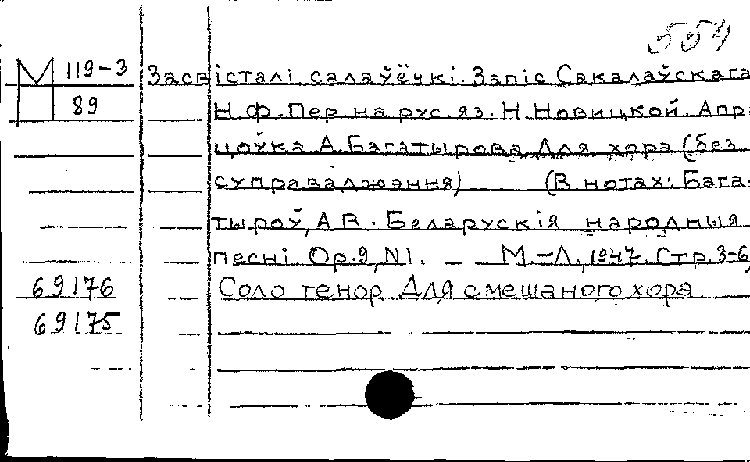 554
М 119-3
89
Засвісталі салаўёчкі. Запіс Сакалаўскага
Н.Ф. Пер на рус яз. Н. Новицкой. Апра
цоўка А. Багатырова Для хора (без
суправаджэння) (В нотах: Бага-
тыроў, А В. Беларускія народныя
песні Ор. 9, N1. – М.–Л., 1947. Стр. 3-6)
69176
Соло тенор Для смешаного хора
69175